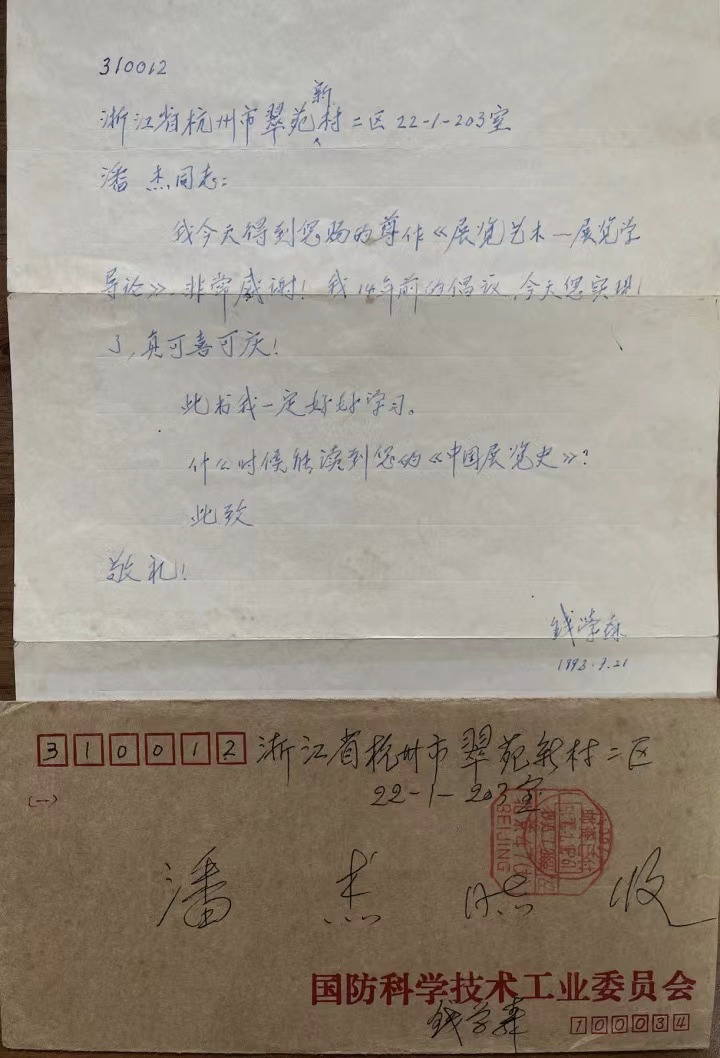 310012
浙江省杭州市翠苑新村二区22-1-203室
潘 杰同志:
我今天得到您赐的尊作《展览艺术—展览学
导论》,非常感谢!我14年前的倡议,今天您实现
了,真可喜可庆!
此书我一定好好学习。
什么时候能读到您的《中国展览史》?
此致
敬礼!
钱学森
1993.9.21
310012 浙江省杭州市翠苑新村二区
22-1-203室
(一)
BEIJING
潘 杰 同志 收
国防科学技术工业委员会
钱学森
100034